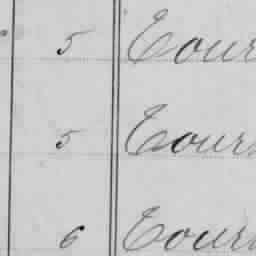 5 Tour
5 Tour
6 Tour